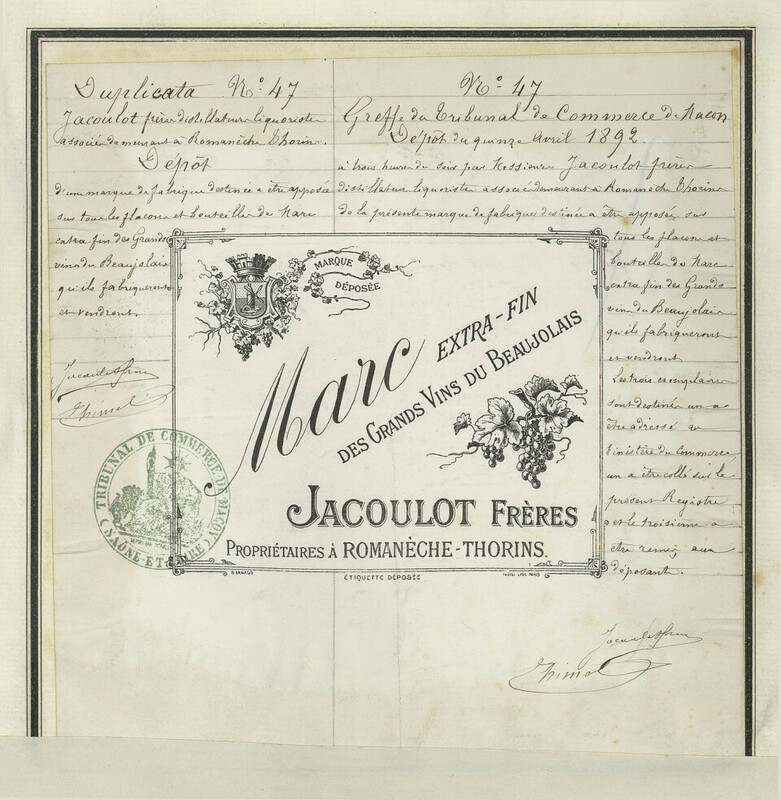 Duplicata N° 47
Jacoulot frères distillateurs liquoristes
associés demeurant à Romanèche Thorins.
Dépôt
d'une marque de fabrique destinée à être apposée
sur tous les flacons et bouteilles de Marc
extra fin des Grands
vins du Beaujolais
qu'ils fabriqueront
et vendront.
Jacoulot frères
Thimel
N° 47
Greffe du Tribunal de Commerce de Macon
Dépôt du quinze Avril 1892.
à trois heures du soir par Messieurs Jacoulot frères
distillateurs liquoristes associés demeurant à Romanèche Thorins
de la présente marque de fabrique destinée à être apposée sur
tous les flacons et
bouteilles de Marc
extra fin des Grands
vins du Beaujolais
qu'ils fabriqueront
et vendront
Les trois exemplaires
sont destinés un a
être adressé au
Ministère du Commerce
un a être collé sur le
présent Registre
et le troisième a
être remis aux
déposants.
Jacoulot frères
Thimel
MARQUE
DÉPOSÉE
Marc EXTRA-FIN
DES GRANDS VINS DU BEAUJOLAIS
JACOULOT FRÈRES
PROPRIÉTAIRES À ROMANÈCHE-THORINS.
ÉTIQUETTE DÉPOSÉE
TRIBUNAL DE COMMERCE DE MACON
(SAÔNE-ET-LOIRE)